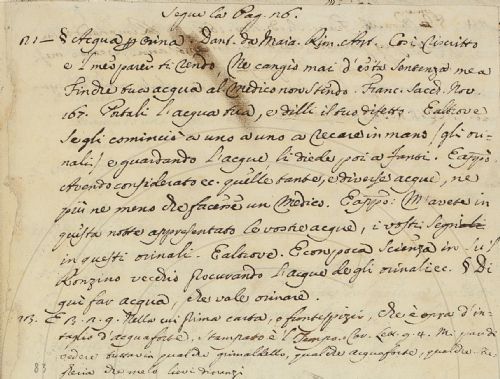 Segue la Pag. 26.
21 — § Acqua per orina Dant. da Maia. Rim. Ant. Così riscritto
e 'l meo parer ti rendo, Nè cangio mai d'esta sentenza mea
Finchè tua acqua al Medico non stendo. Franc. Sacch. Nov.
167. Portali l'acqua tua, e dilli il tuo difetto. Ealtrove
Se gli cominciò a uno a uno a recare in mano (gli ori-
nali) e guardando l'acque li diede poi a fanti. Eappò.
Avendo considerato ec. quelle tante, e diverse acque, nè
più ne meno che facesse un Medico. Eappò. M'avete in
questa notte appresentato le vostre acque, i vostri segnali
in questi orinali. Ealtrove. Econ poca scienza in
Ronzino vecchio procurando l'acque degli orinali ec. § Di
qui far acqua, che vale orinare.
23. E B. n. 9. Nella cui prima carta, o frontespizio, che è opra d'in-
taglio d'acquaforte, stampato è l'Tempo. Car. Lett. 9. 4. Mi par di
vedere in qualche acquaforte, qualche
che melo levi dinanzi
83